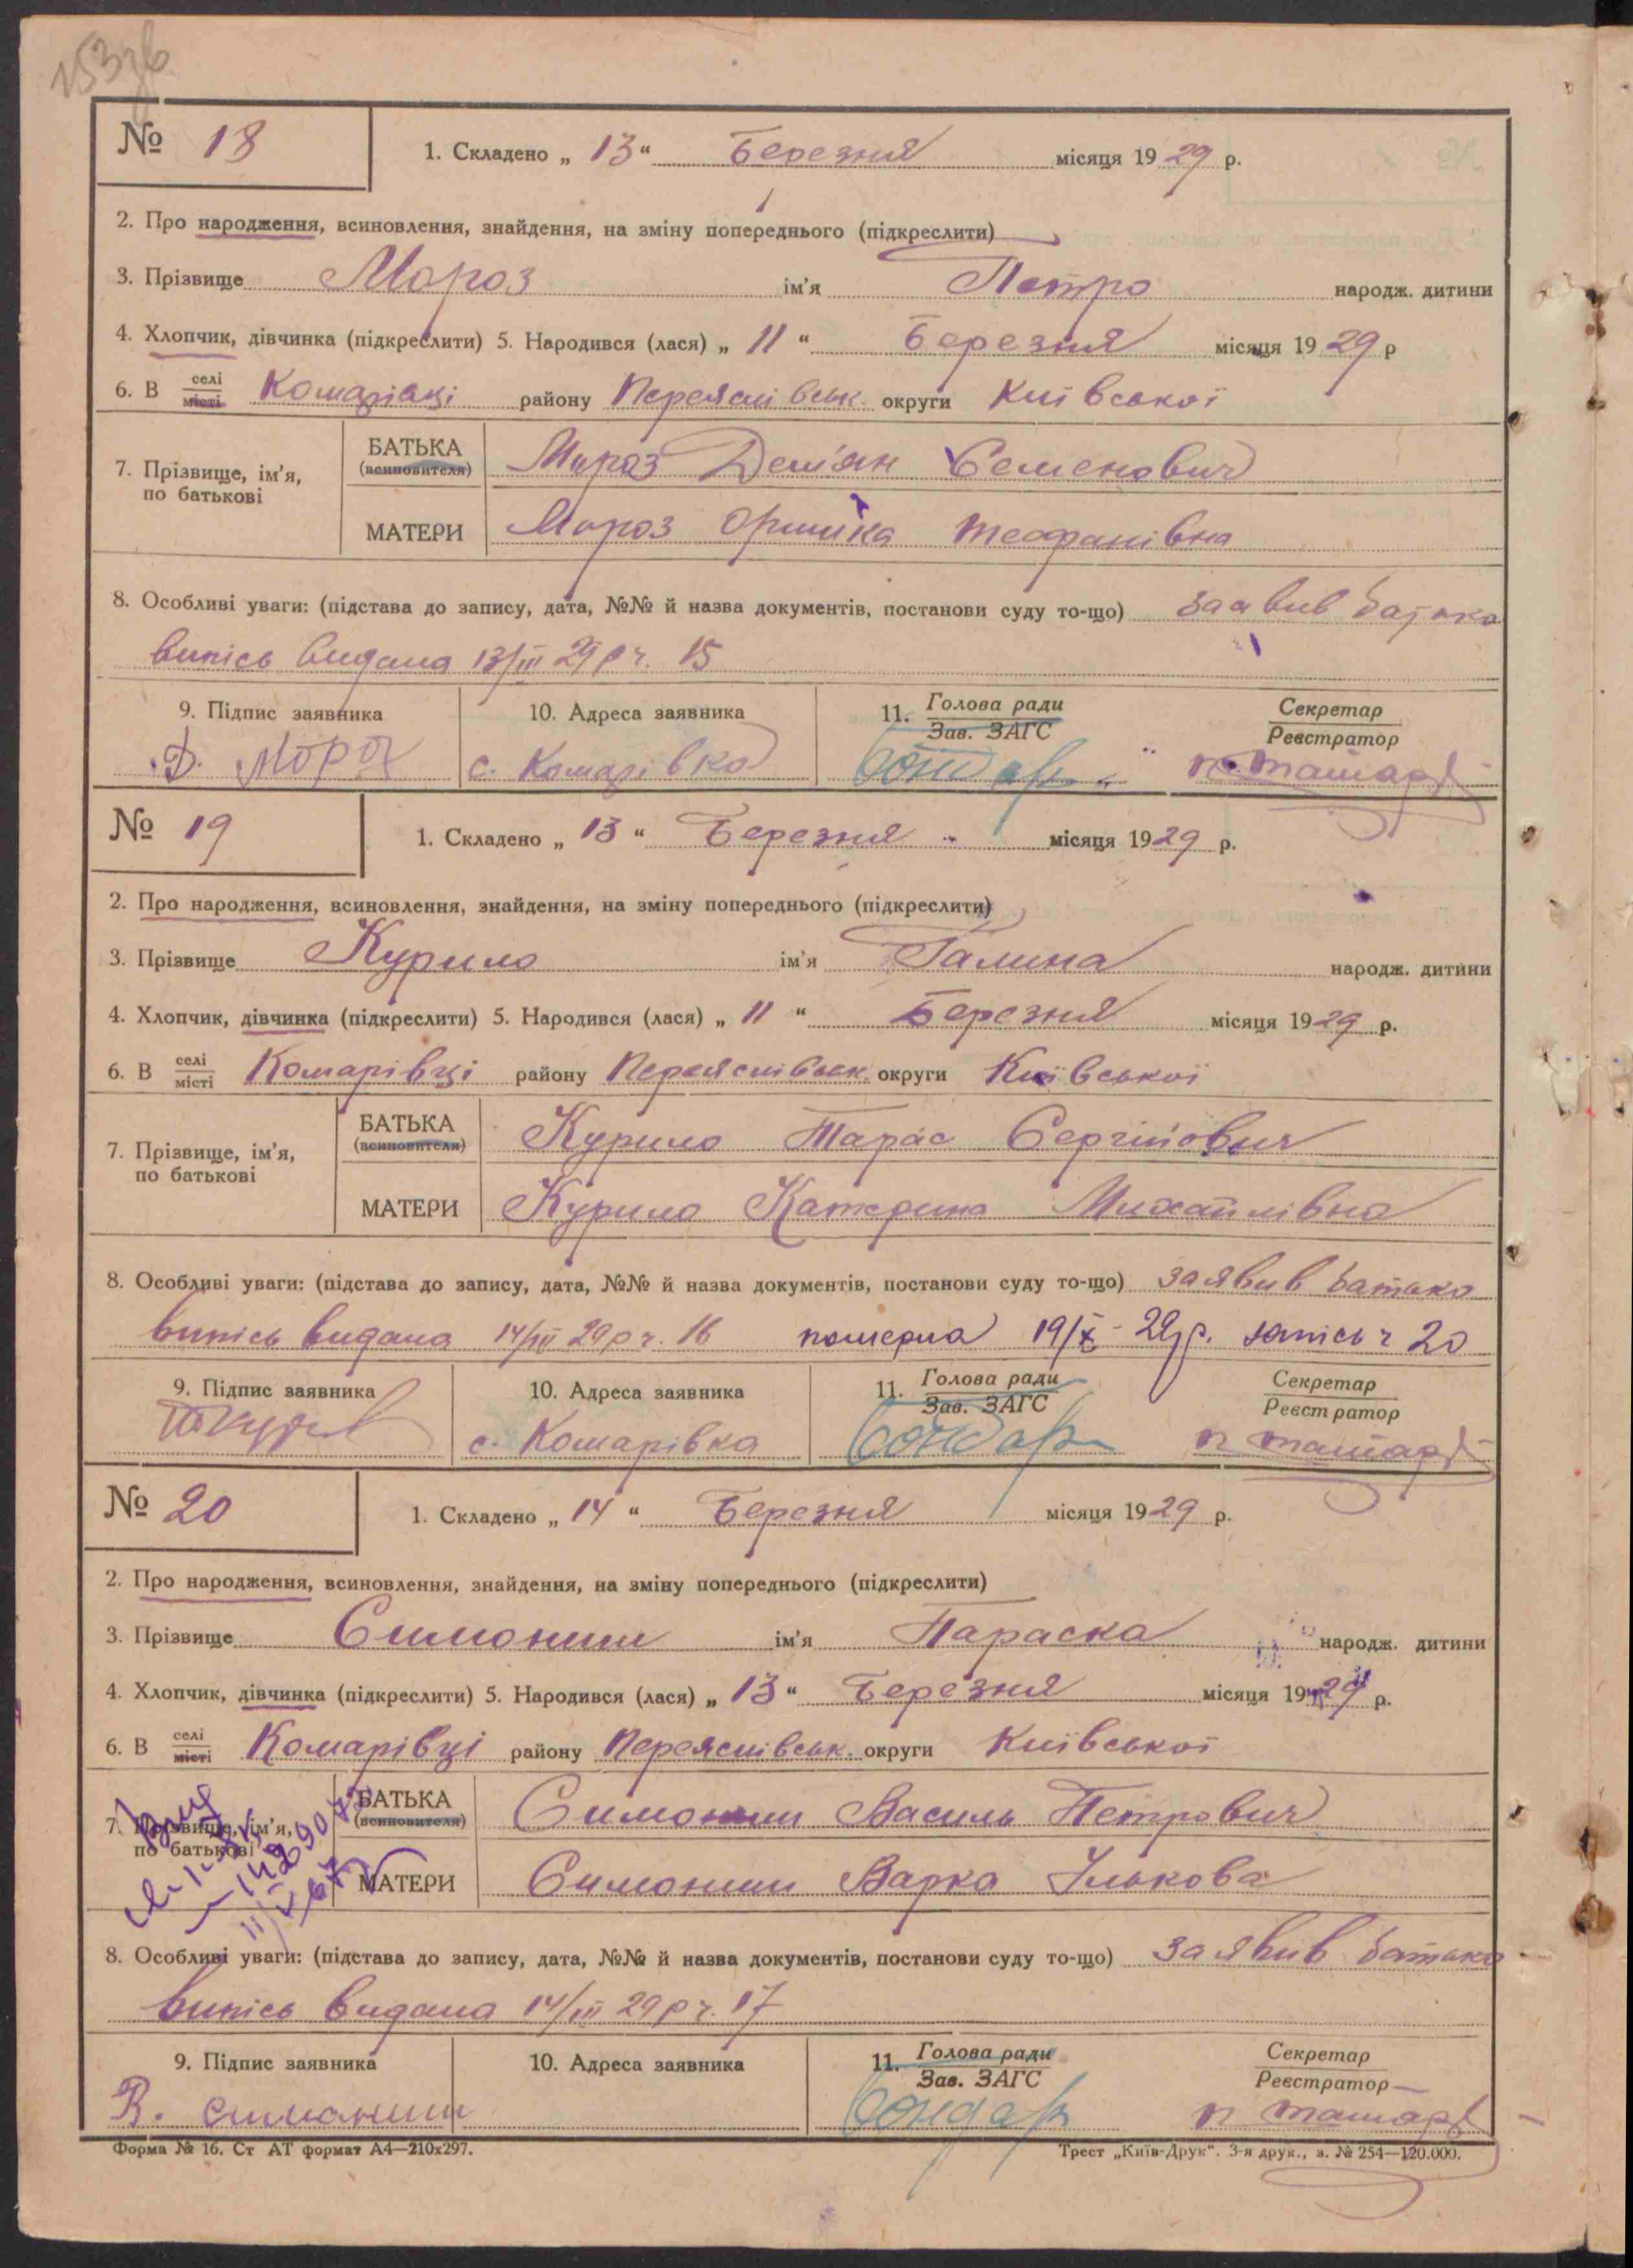 № 18
1. Складено „ 13 “ Березня місяця 1929 р.
2. Про народження, всиновлення, знайдення, на зміну попереднього (підкреслити)
3. Прізвище Мороз ім'я Петро народж. дитини
4. Хлопчик, дівчинка (підкреслити) 5. Народився (лася) „ 11 “ Березня місяця 1929 р
6. В селі місті Комарівці району Переяслівськ. округи Київської
7. Прізвище, ім'я, по батькові
БАТЬКА (всиновителя) Мороз Дем'ян Семенович
МАТЕРИ Мороз Теофанівна
8. Особливі уваги: (підстава до запису, дата, №№ й назва документів, постанови суду то-що) заявив батько
випісь видана 13/III 29 р ч. 15
9. Підпис заявника 10. Адреса заявника 11. Голова ради Зав. ЗАГС Секретар Реєстратор
Д. Мороз с. Комарівка Бондар
№ 19
1. Складено „ 13 “ Березня місяця 1929 р.
2. Про народження, всиновлення, знайдення, на зміну попереднього (підкреслити)
3. Прізвище Курило ім'я Галина народж. дитини
4. Хлопчик, дівчинка (підкреслити) 5. Народився (лася) „ 11 “ Березня місяця 1929 р.
6. В селі місті Комарівці району Переяслівськ. округи Київської
7. Прізвище, ім'я, по батькові
БАТЬКА (всиновителя) Курило Тарас Сергійович
МАТЕРИ Курило Катерина Михайлівна
8. Особливі уваги: (підстава до запису, дата, №№ й назва документів, постанови суду то-що) заявив батько
випісь видана 14/III 29 р ч. 16 померла 19/X - 29 р. запись ч 20
9. Підпис заявника 10. Адреса заявника 11. Голова ради Зав. ЗАГС Секретар Реєстратор
с. Комарівка Бондар
№ 20
1. Складено „ 14 “ Березня місяця 1929 р.
2. Про народження, всиновлення, знайдення, на зміну попереднього (підкреслити)
3. Прізвище Симониш ім'я Параска народж. дитини
4. Хлопчик, дівчинка (підкреслити) 5. Народився (лася) „ 13 “ Березня місяця 1929 р.
6. В селі місті Комарівці району Переяслівськ. округи Київської
7. Прізвище, ім'я, по батькові
БАТЬКА (всиновителя) Симониш Василь Петрович
МАТЕРИ Симониш Варка Ількова
8. Особливі уваги: (підстава до запису, дата, №№ й назва документів, постанови суду то-що) заявив батько
випісь видана 14/III 29 р ч. 17
9. Підпис заявника 10. Адреса заявника 11. Голова ради Зав. ЗАГС Секретар Реєстратор
В. Симониш Бондар
Форма № 16. Ст АТ формат А4—210х297. Трест „Київ-Друк“. 3-я друк., з. № 254—120.000.